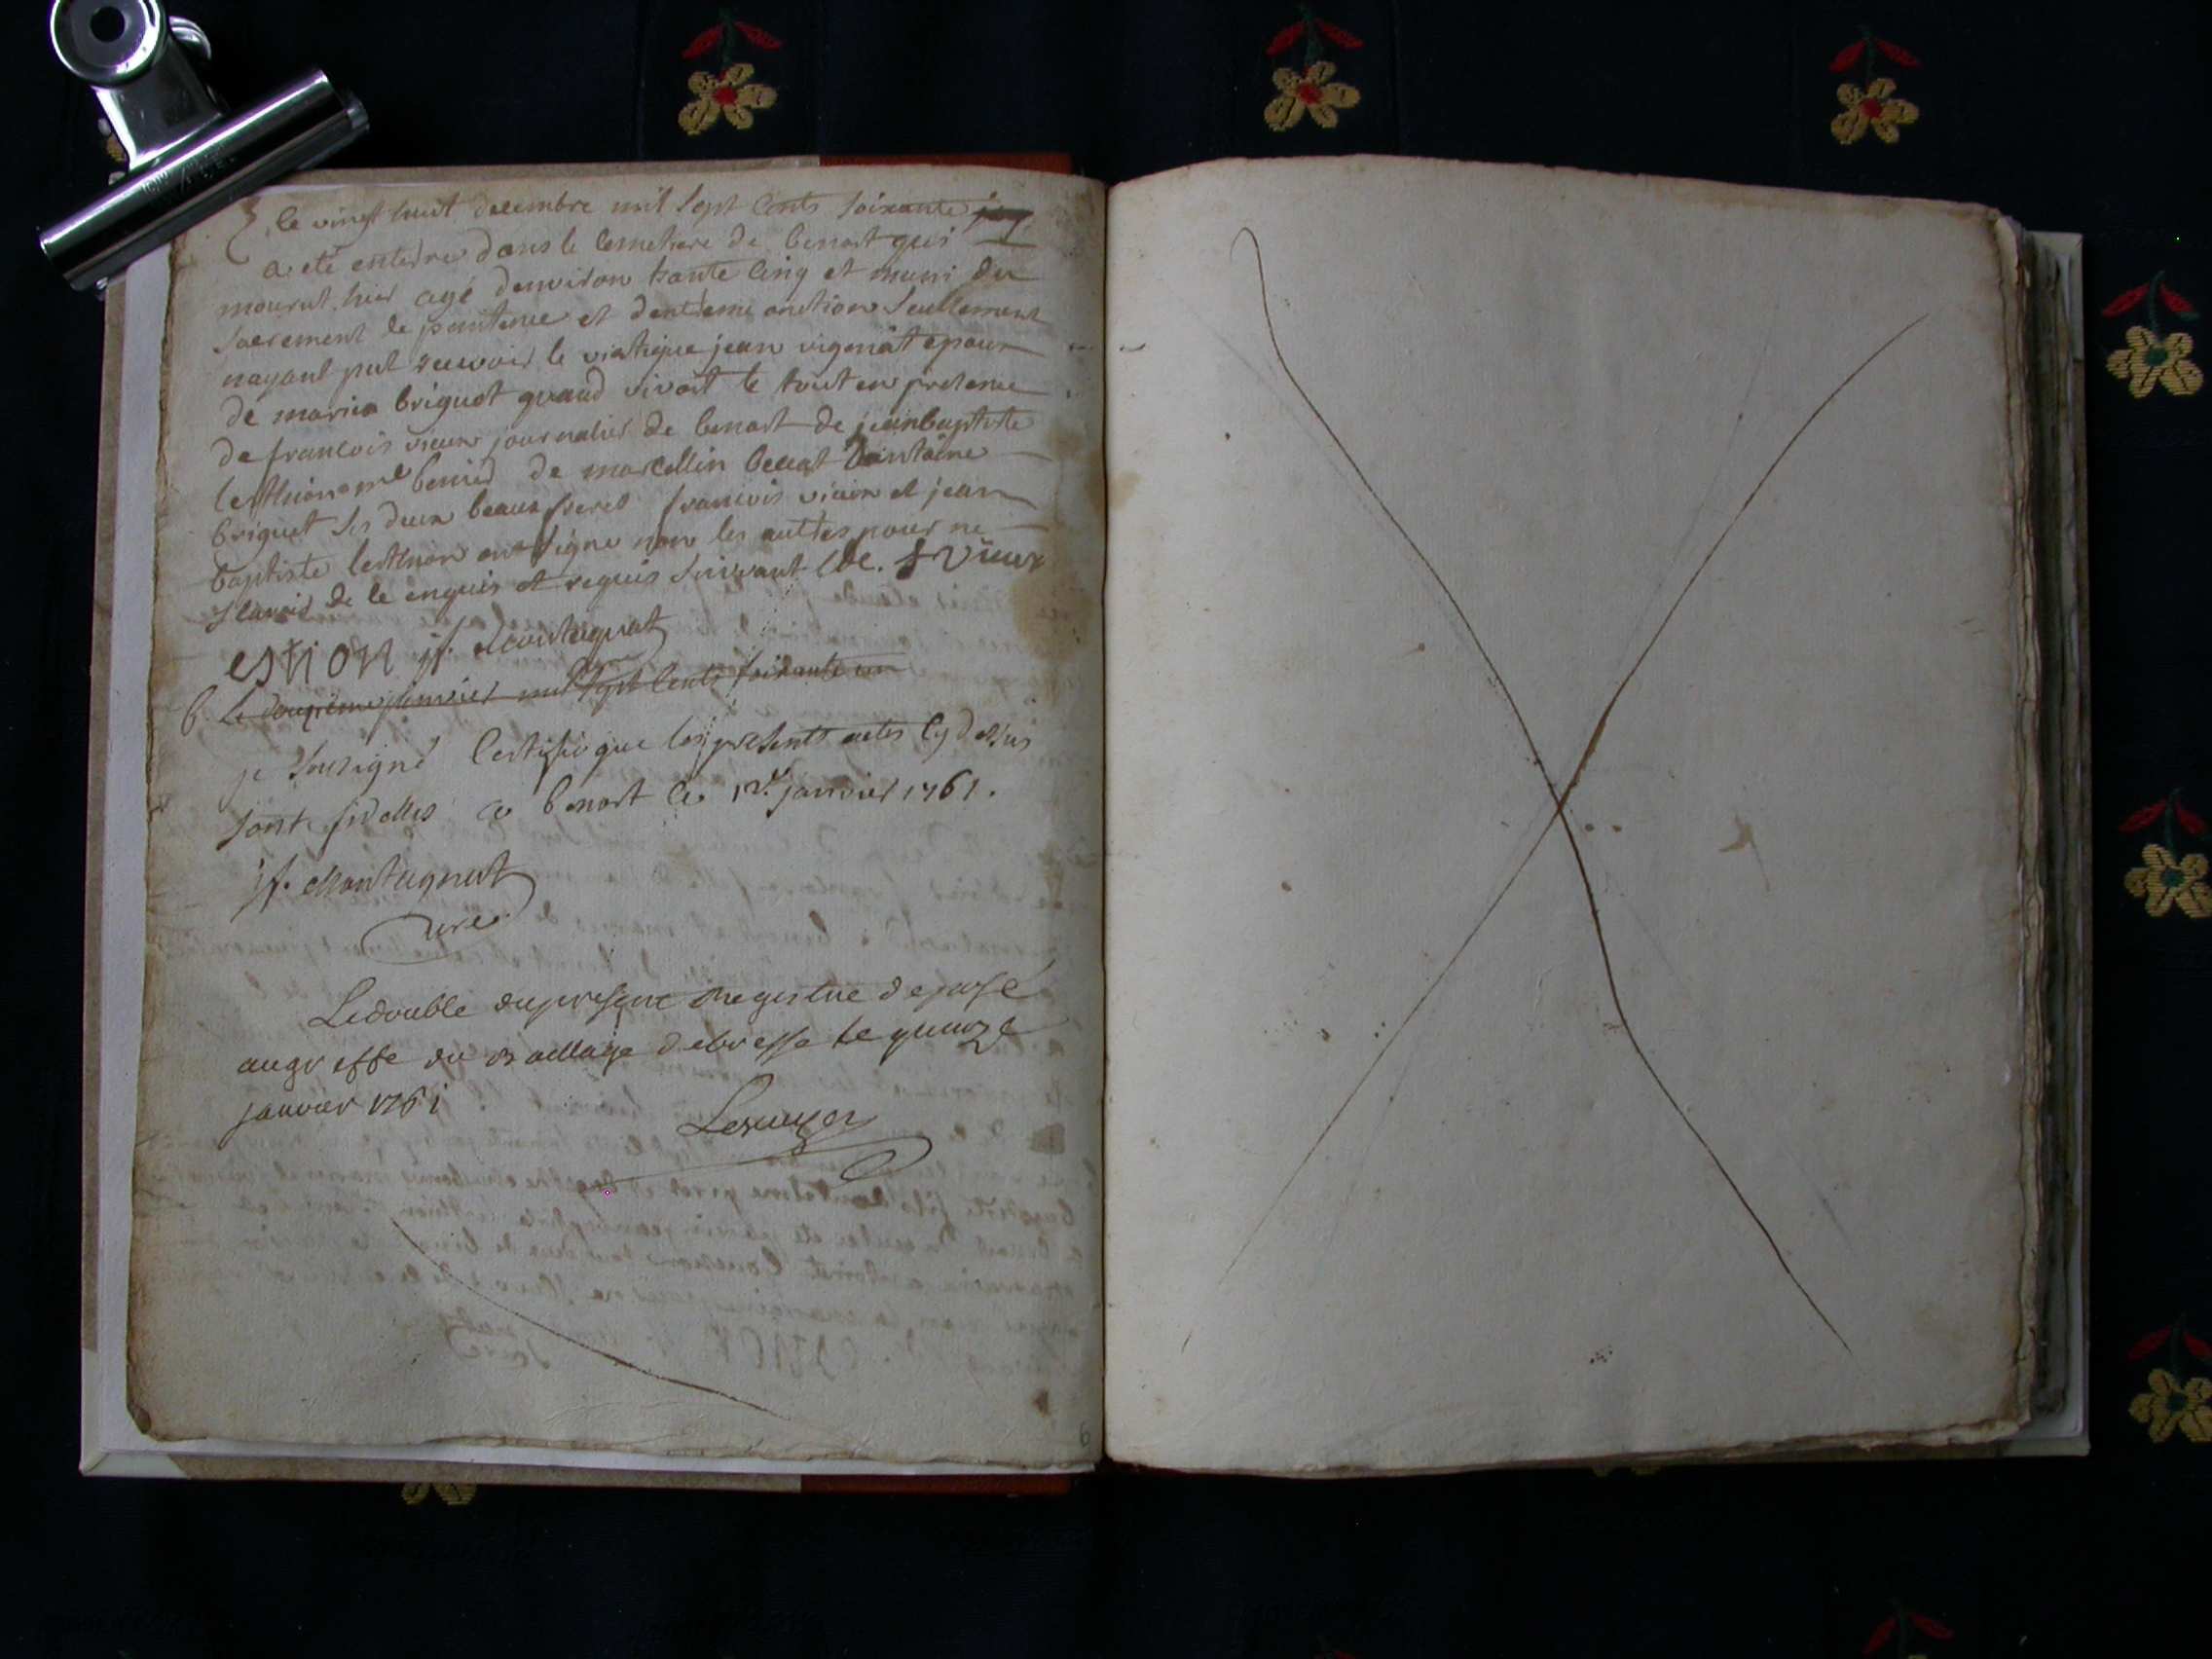 le vingt huit decembre mil sept cents soixante
a été enterré dans le cemetiere de benost qui
mourut hier agé denviron trante cinq et muni du
sacrement de penitence et dextreme onction seullement
nayant put recevoir le viatique jean vigenat epoux
de marie briquet quand vivoit le tout en presence
de francois vieux journalier de benost de jeanbaptiste
berrier de marcellin antoine
briquet ses deux beaux freres francois vieux et jean
baptiste ont signe non les auttes pour ne
scavoir de ce enquis et requis suivant lde. f vieux
estion jf. Montagnat
b. Le douzieme janvier mil sept cents soixante un
je sousigné certifie que les presents actes cy dessus
sont fidelles a benost ce 1er janvier 1761.
jf. Montagnat
Curé
Le double du present Registre deposé
au greffe du Bailliage de bresse le quinze
janvier 1761
6